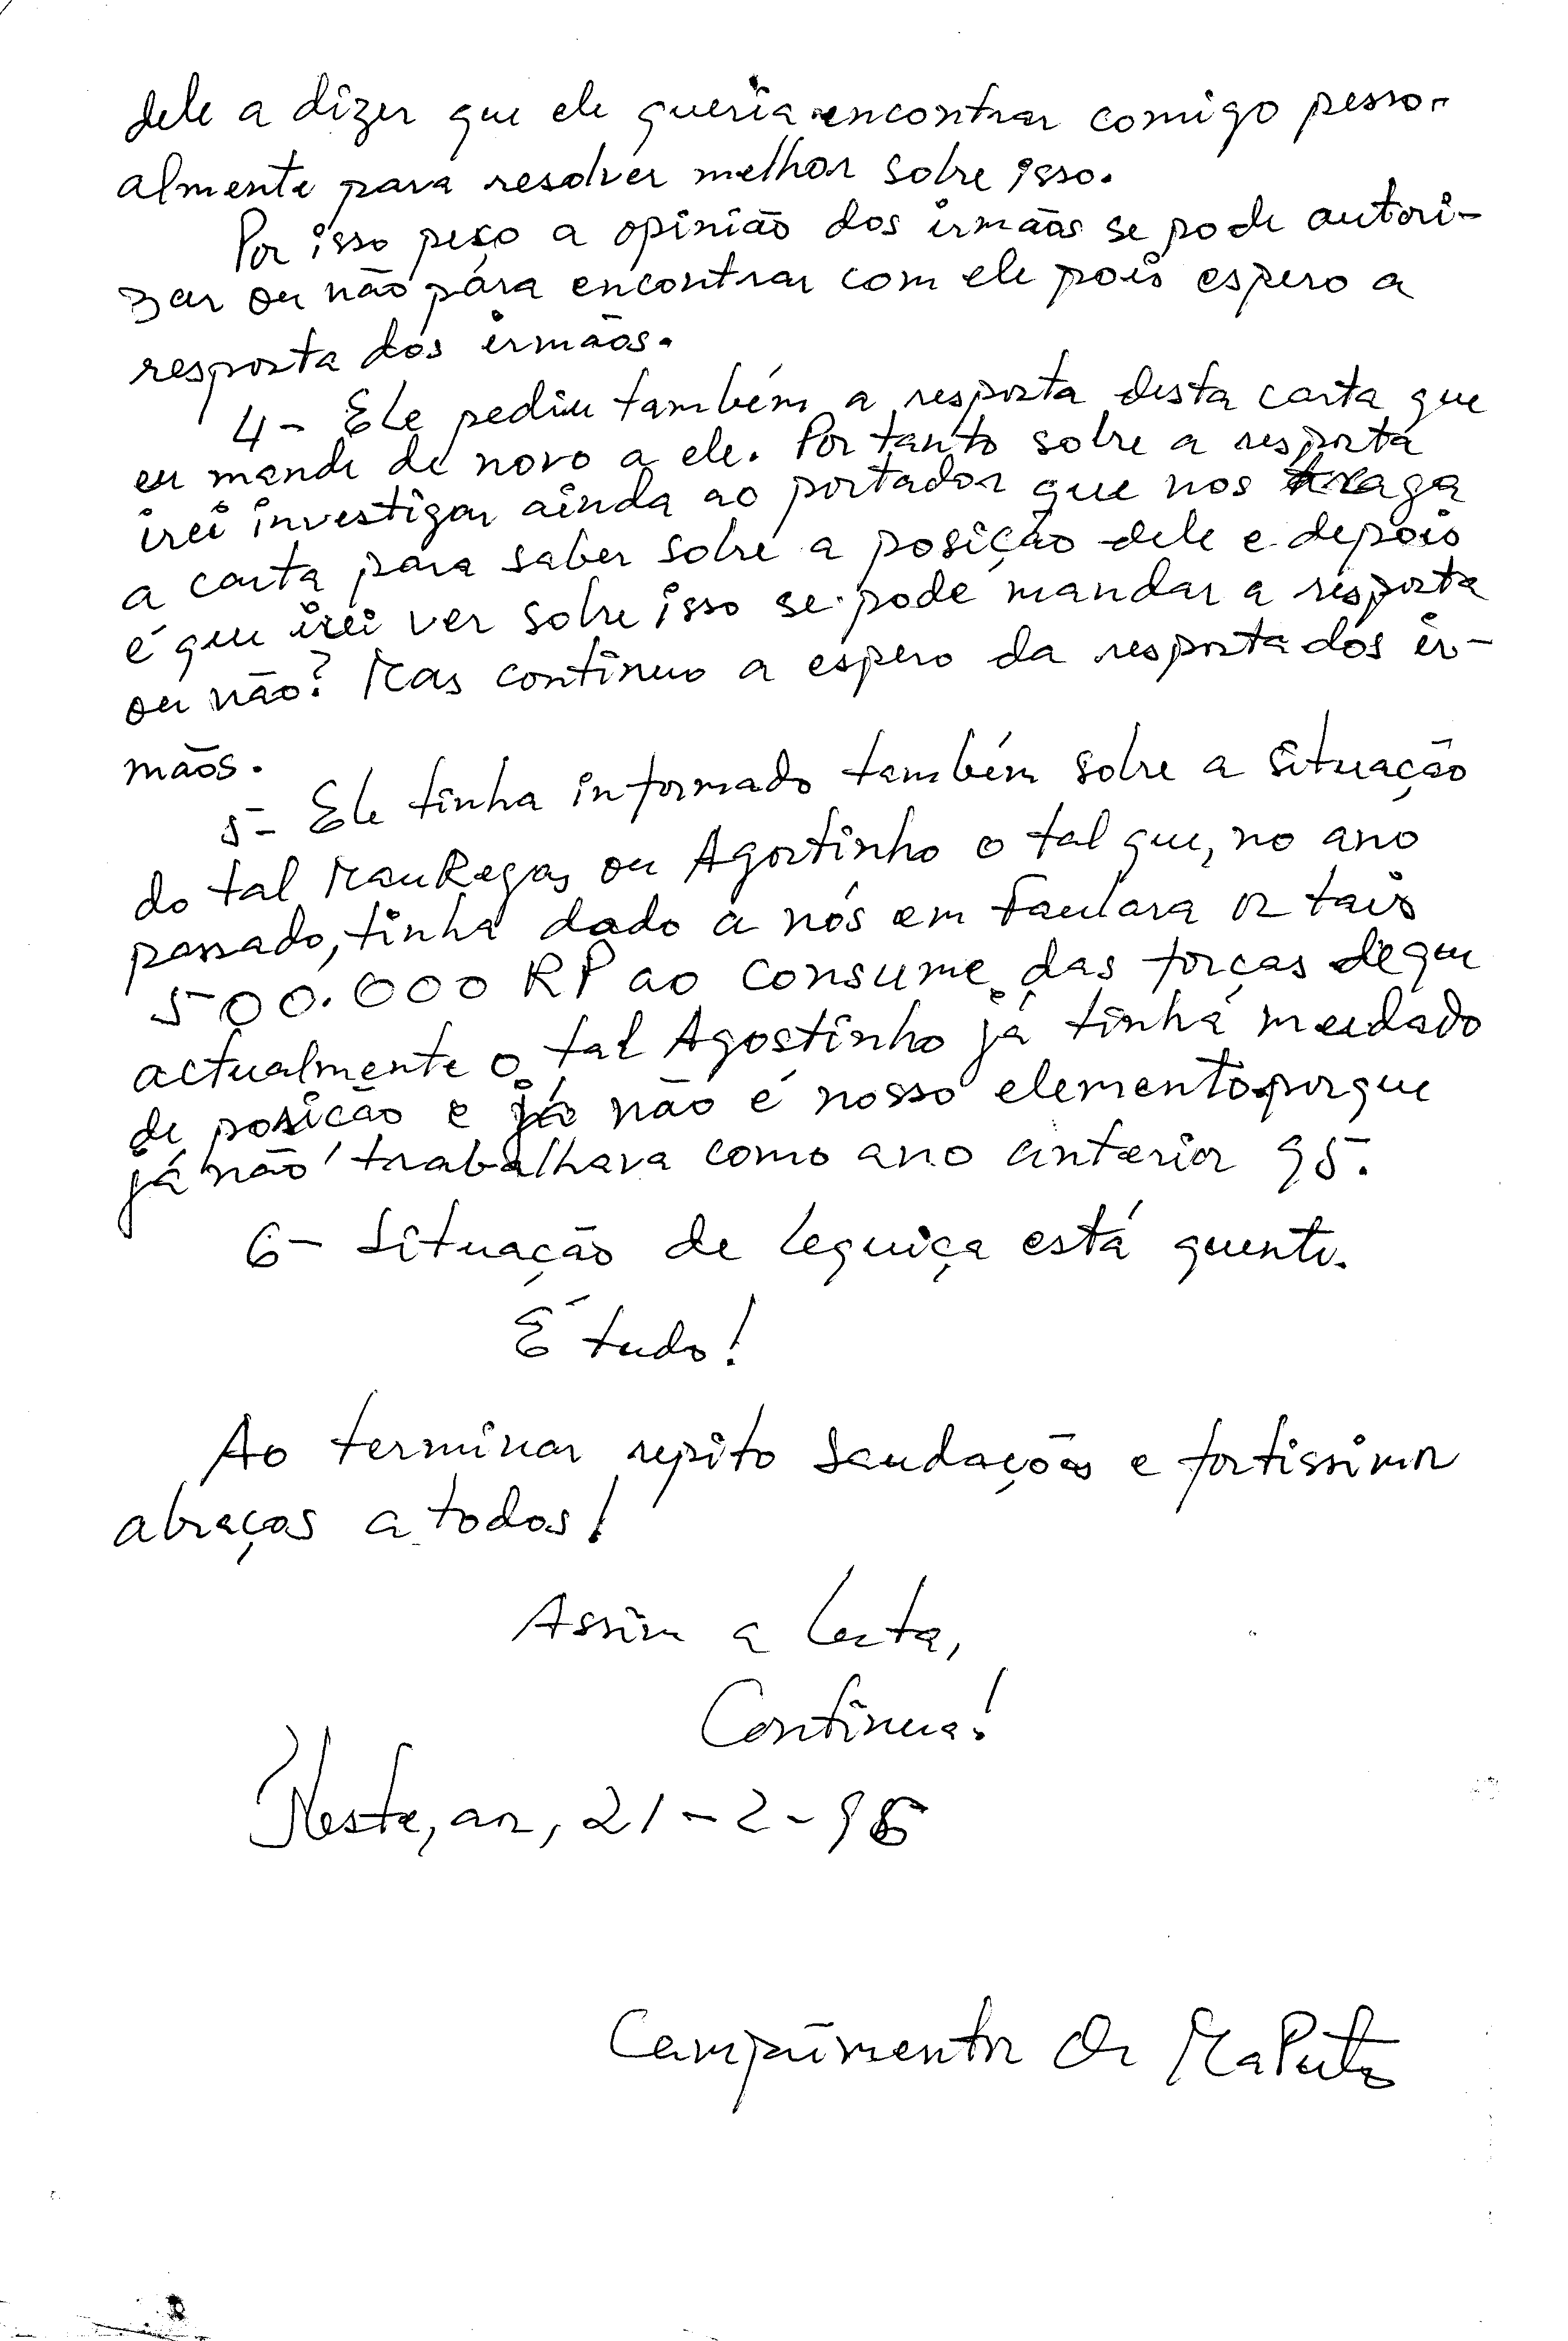 dele a dizer que ele queria encontrar comigo pesso-
almente para resolver melhor sobre isso.
Por isso peço a opinião dos irmãos se pode autori-
zar ou não para encontrar com ele pois espero a
resposta dos irmãos.
4- Ele pediu também a resposta desta carta que
eu mande de novo a ele. Por tanto sobre a resposta
irei investigar ainda ao portador que nos traga
a carta para saber sobre a posição dele e depois
é que irei ver sobre isso se pode mandar a resposta
ou não? Mas continuo a espero da resposta dos ir-
mãos.
5- Ele tinha informado também sobre a situação
do tal MauRegas ou Agostinho o tal que, no ano
passado, tinha dado a nós em Faulara os tais
500.000 RP ao consume das forças de que
actualmente o tal Agostinho já tinha mudado
de posição e já não é nosso elemento porque
já não trabalhava como ano anterior 95.
6- Situação de Leguiça está quente.
É tudo!
Ao terminar repito saudações e fortissimos
abraços a todos!
Assim a luta,
Continua!
Neste, aos, 21-2-96
Cumprimentos de MaPuto